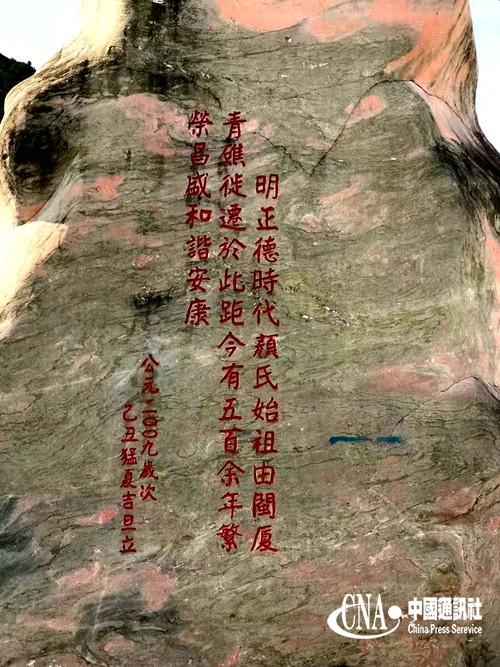 明正德時代顏氏始祖由閩厦
青礁徙遷於此距今有五百余年繁
榮昌盛和諧安康
公元二〇〇九歲次
乙丑猛夏吉旦立
CNA 中國通訊社
China Press Serevice